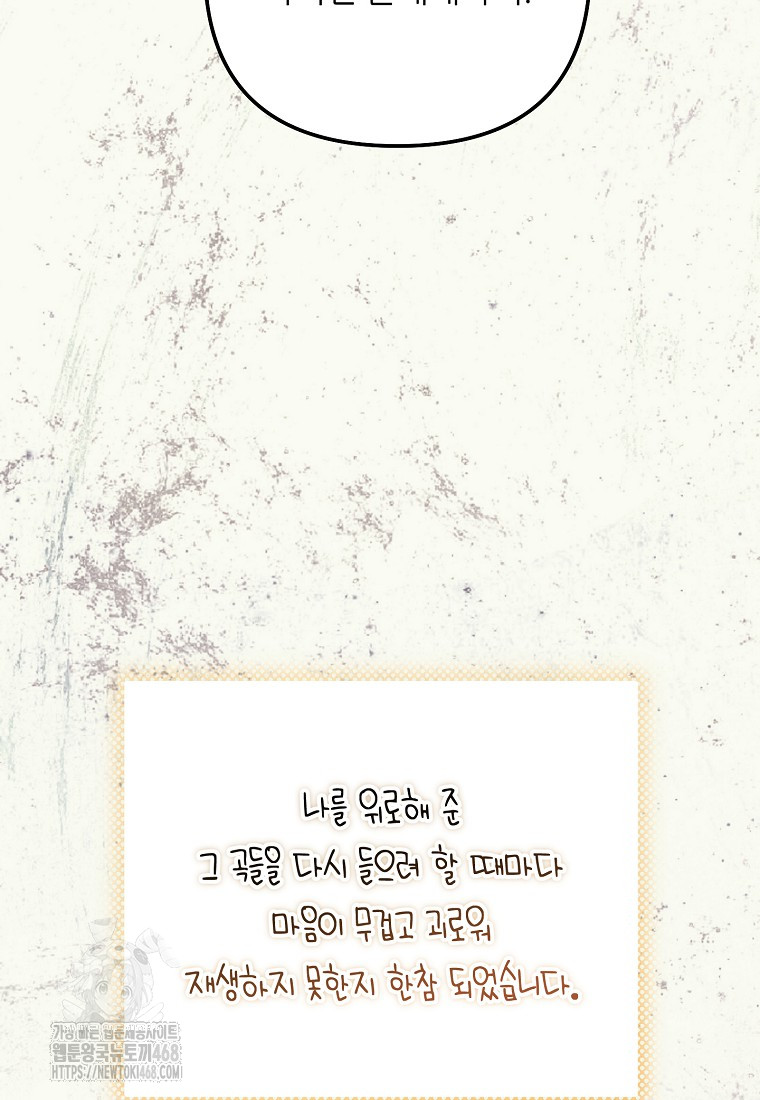 나를 위로해 준
그 곡들을 다시 들으려 할 때마다
마음이 무겁고 괴로워
재생하지 못한지 한참 되었습니다.
가장 빠른 웹툰제공사이트
웹툰왕국뉴토끼468
HTTPS://NEWTOKI468.COM